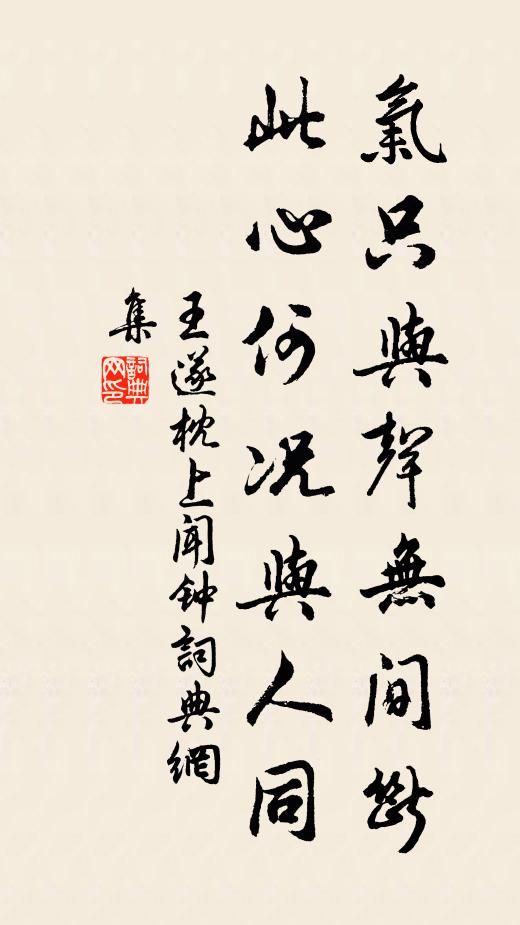 氣只與聲無間斷
此心何況與人同
王遂枕上闻钟詞典網
集
詞典網印